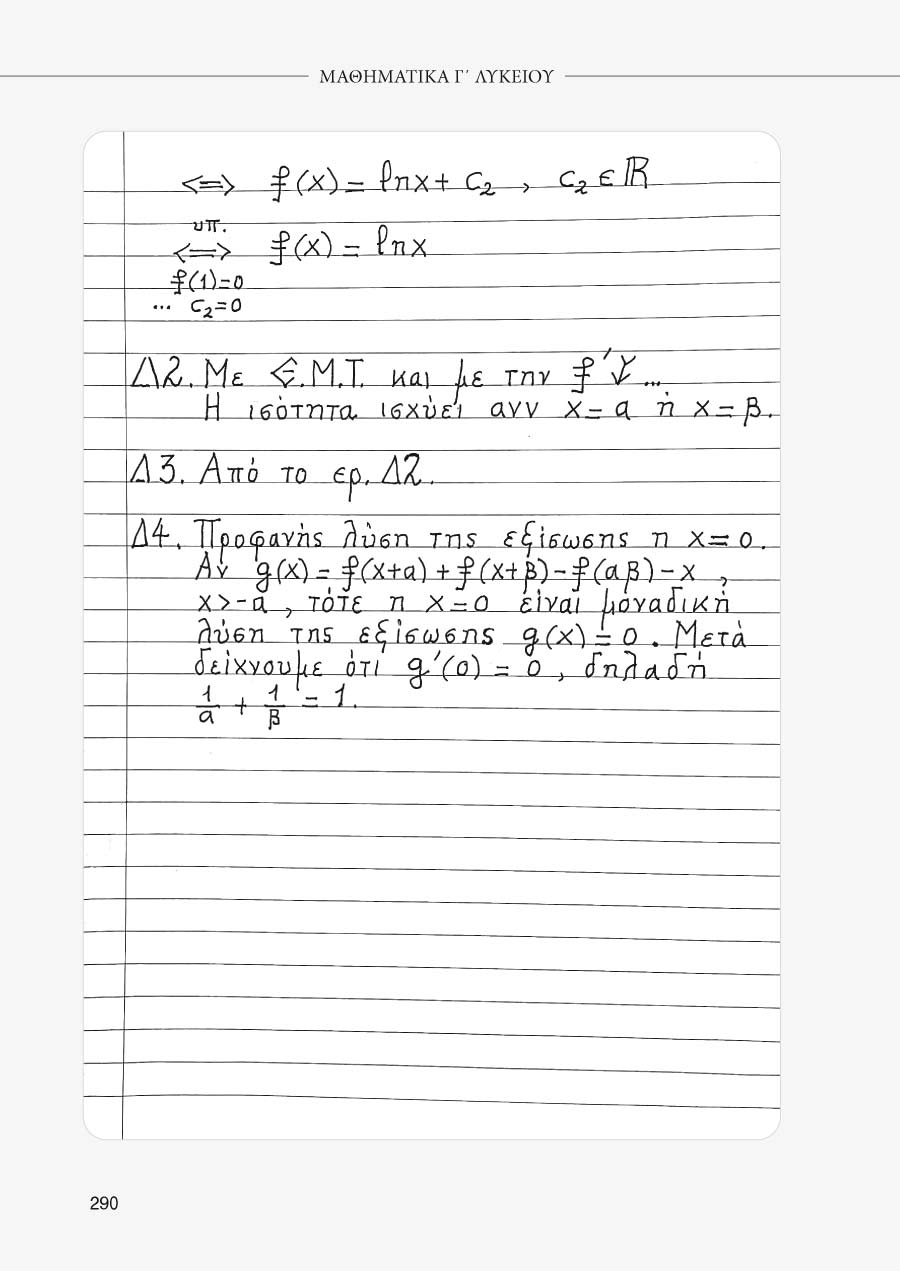 ΜΑΘΗΜΑΤΙΚΑ Γ΄ ΛΥΚΕΙΟΥ
<=> f(x) = lnx + c₂ , c₂ ∈ ℝ
υπ.
<=> f(x) = lnx
f(1)=0
... c₂=0
Δ2. Με Θ.Μ.Τ. και με την f′↓ ...
Η ισότητα ισχύει ανν x = α ή x = β.
Δ3. Από το ερ. Δ2.
Δ4. Προφανής λύση της εξίσωσης η x = 0.
Αν g(x) = f(x+α) + f(x+β) - f(αβ) - x ,
x > -α , τότε η x = 0 είναι μοναδική
λύση της εξίσωσης g(x) = 0 . Μετά
δείχνουμε ότι g′(0) = 0 , δηλαδή
1/α + 1/β = 1.
290